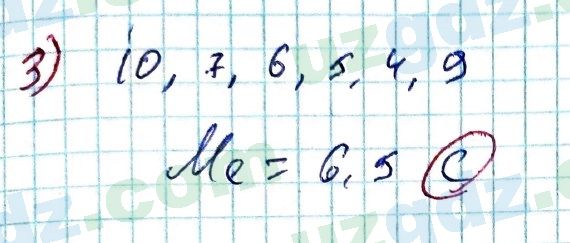 3) 10, 7, 6, 5, 4, 9
Me = 6,5 C